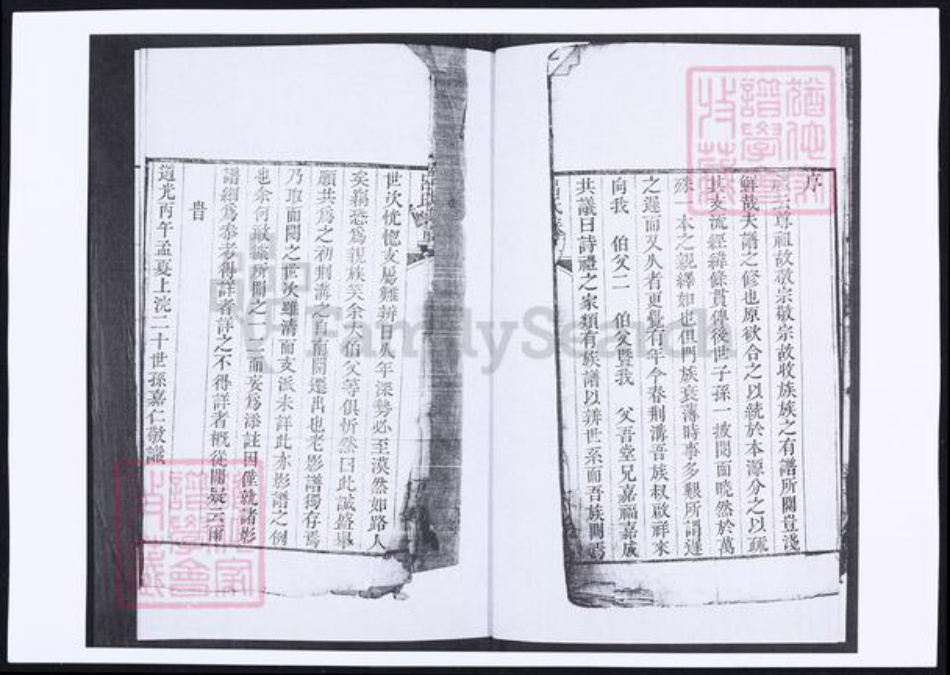 序
云尊祖故敬宗敬宗故收族族之有譜所關豈淺
鮮哉夫譜之修也原欲合之以統於本源分之以疏
其支流經緯條貫傳後世子孫一披閱而曉然於萬
殊一本之親繹如也但門族衰薄時事多艱所謂遲
之遲而又久者更覺有年今春荆溝吾族叔啟祥來
向我 伯父二 伯父暨我 父吾堂兄嘉福嘉咸
共議曰詩禮之家類有族譜以辨世系而吾族間焉
呂氏族譜
世次恍惚支屬難辨日久年深勢必至漠然如路人
矣竊恐為親族笑余大伯父等俱忻然曰此誠盛舉
願共為之初荆溝之自南關遷出也老影譜獨存焉
乃取而閱之世次雖清而支派未詳此亦影譜之例
也余何敢據所聞之一二而妄為添註因僅就諸影
譜細為參考得詳者詳之不得詳者概從闕疑云爾
旹
道光丙午孟夏上浣二十世孫嘉仁敬識
FamilySearch